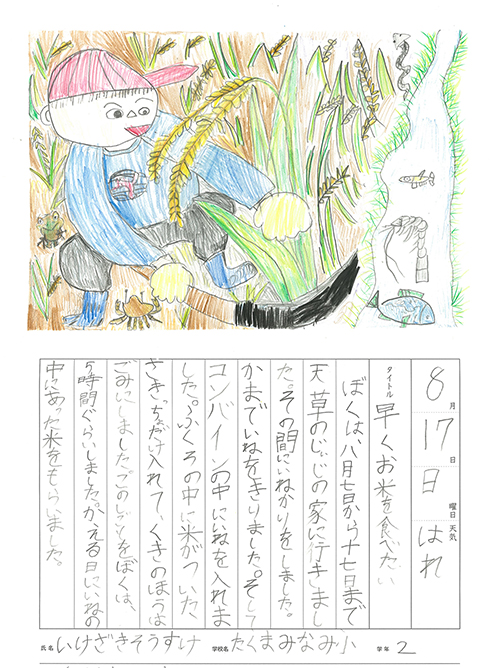 8月
17日
日曜日
天気 はれ
タイトル 早くお米を食べたい
ぼくは、八月七日から十七日まで
天草のじぃじの家に行きまし
た。その間にいねかりをしました。
かまでいねをきりました。そして
コンバインの中にいねを入れま
した。ふくろの中に米がついた
さきっちょだけ入れて、くきのほうは
ごみにしました。このしごとをぼくは、
5時間ぐらいしました。かえる日にいねの
中にあった米をもらいました。
氏名 いけざきそうすけ 学校名 たくまみなみ小 学年 2